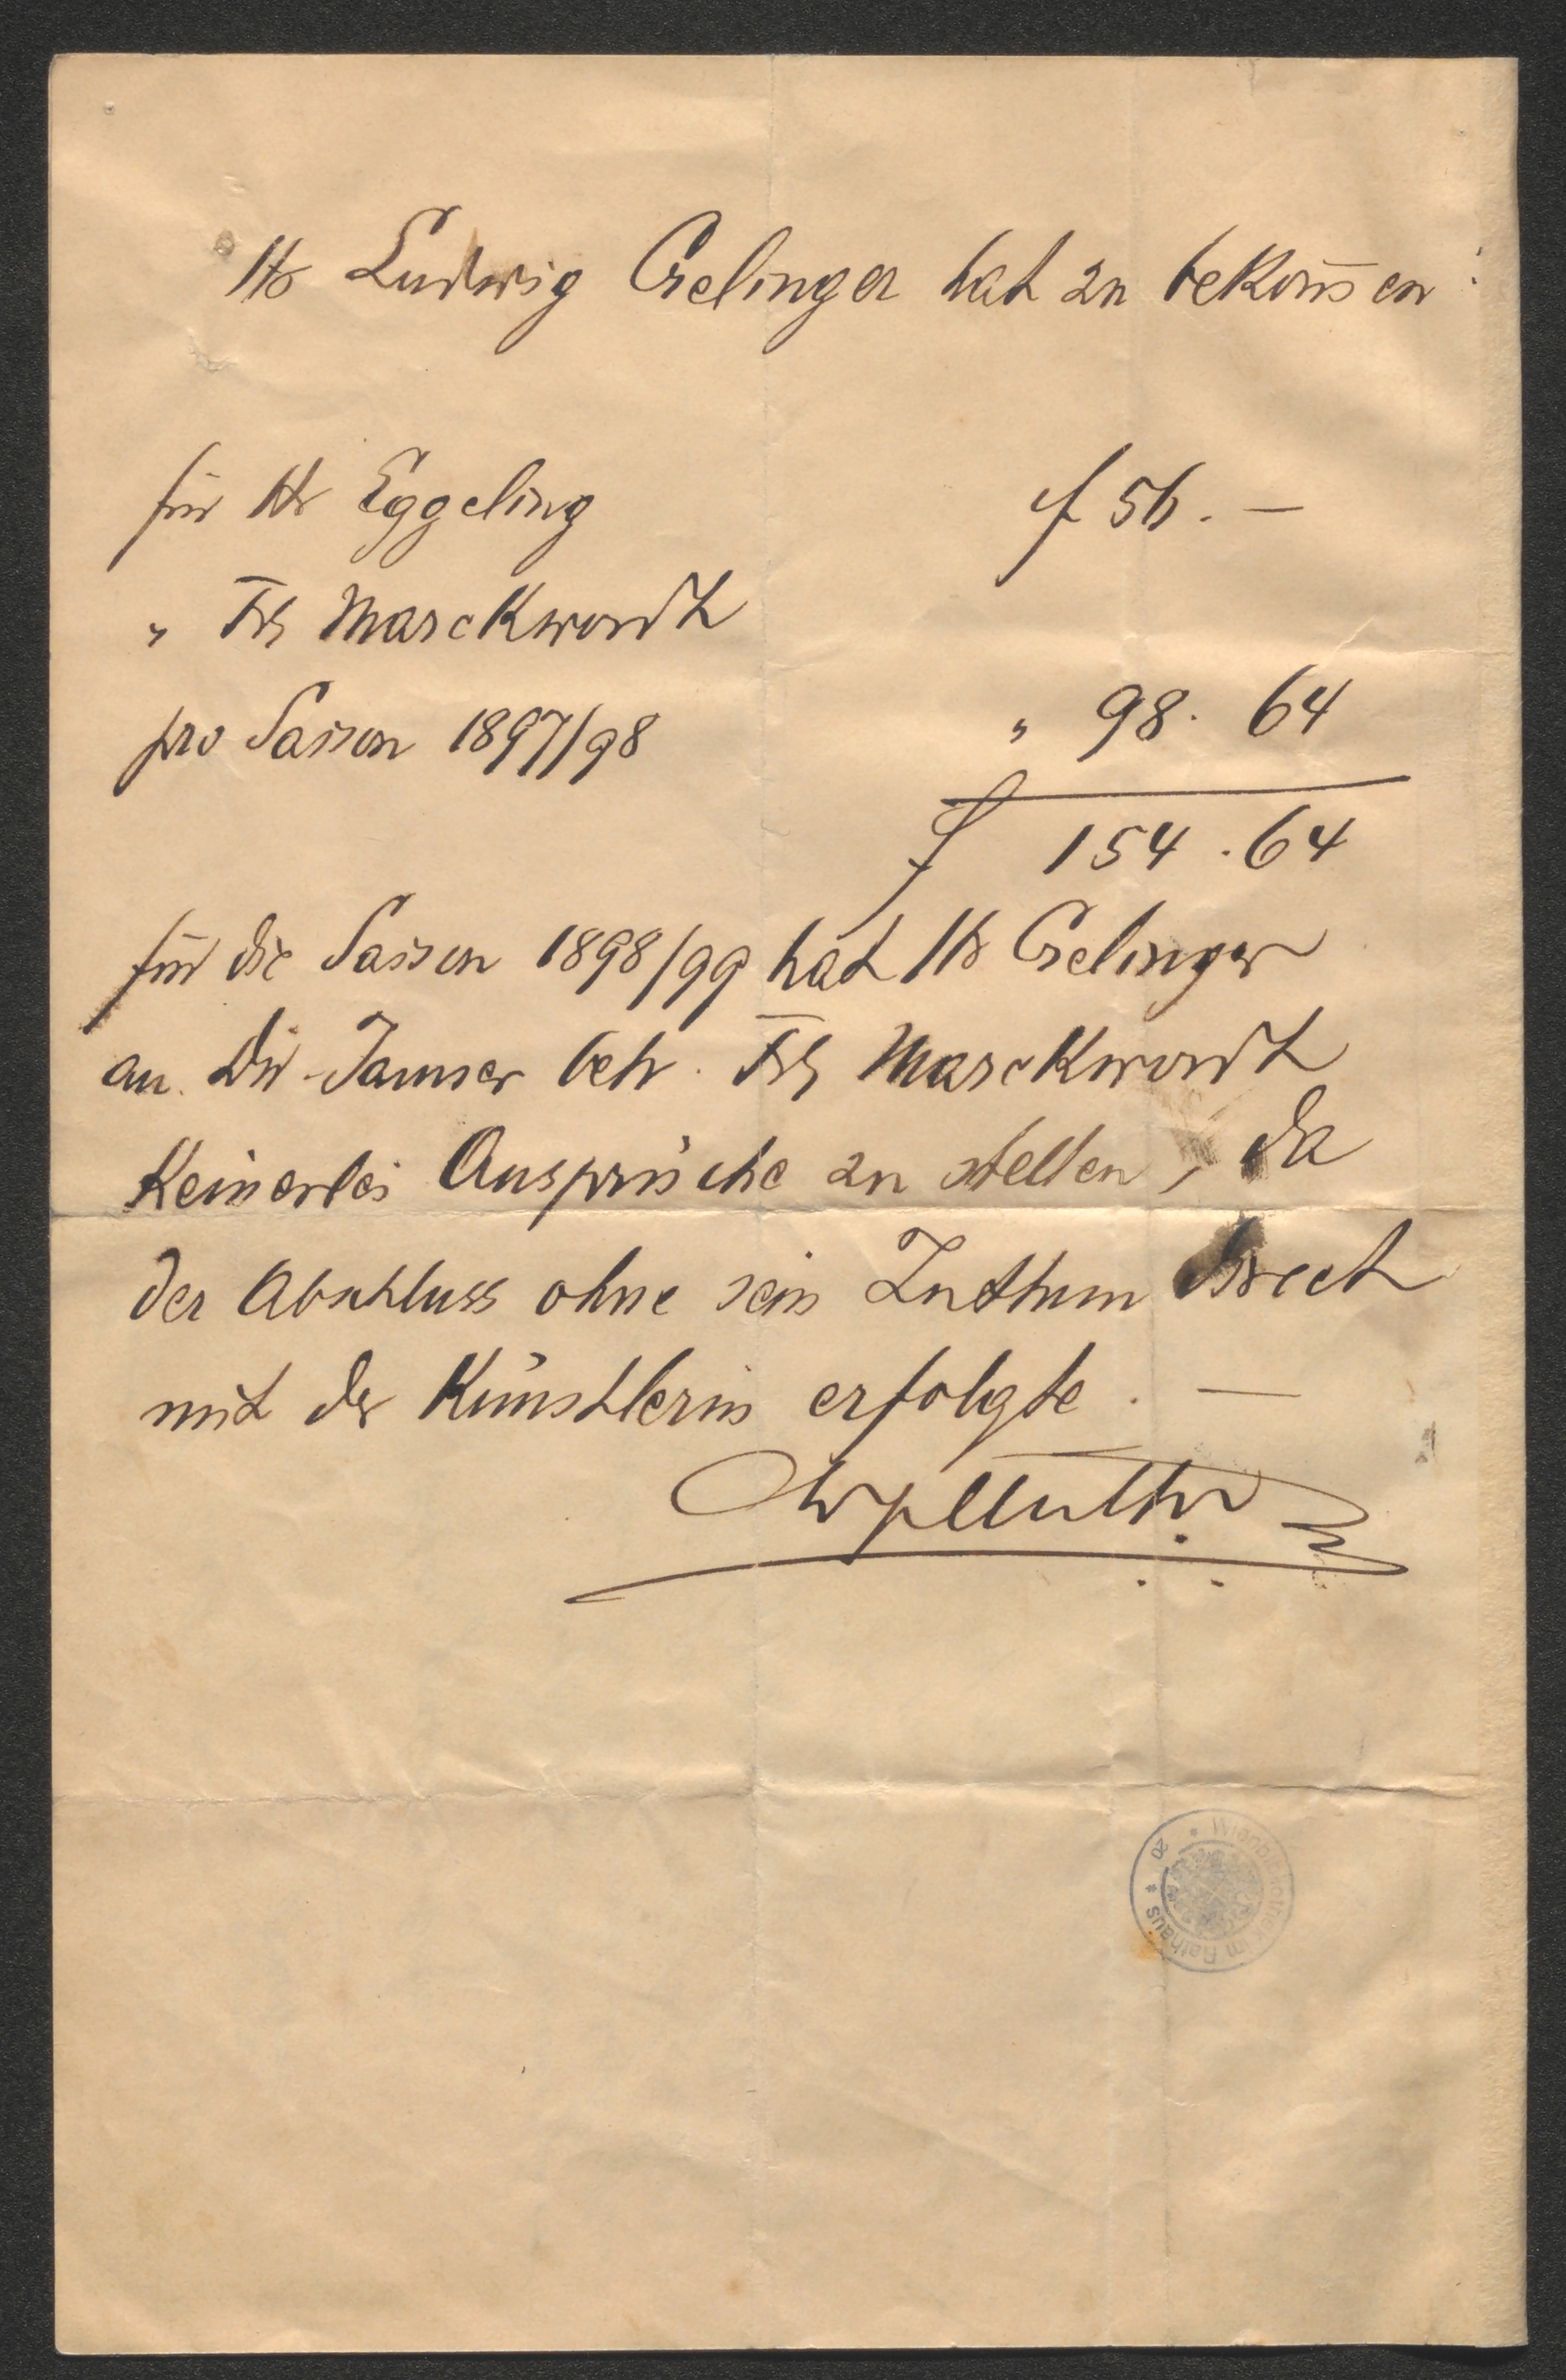 Hr Ludwig Gelinger hat zu bekom̄en:
für Hr Eggeling f 56. —
" Frl Marckwordt
pro Saison 1897/98 " 98. 64
f 154. 64
für die Saison 1898/99 hat Hr Gelinger
an Dir. Jauner betr. Frl Marckwordt
Keinerlei Ansprüche zu stellen, da
der Abschluss ohne sein Zuthun direct
mit der Künstlerin erfolgte. —
Wienbibliothek im Rathaus * 20 *